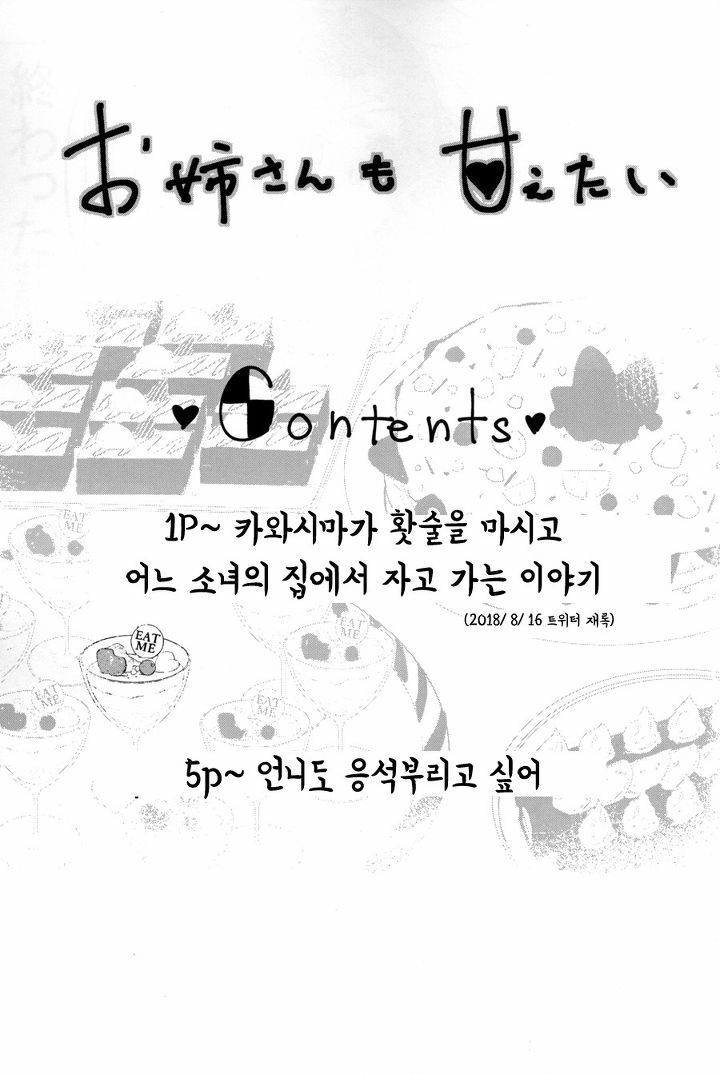 お姉さんも 甘えたい
Contents
1P~ 카와시마가 홧술을 마시고
어느 소녀의 집에서 자고 가는 이야기
(2018/ 8/ 16 트위터 재록)
EAT ME
EAT
ME
EAT ME
EAT ME
5p~ 언니도 응석부리고 싶어